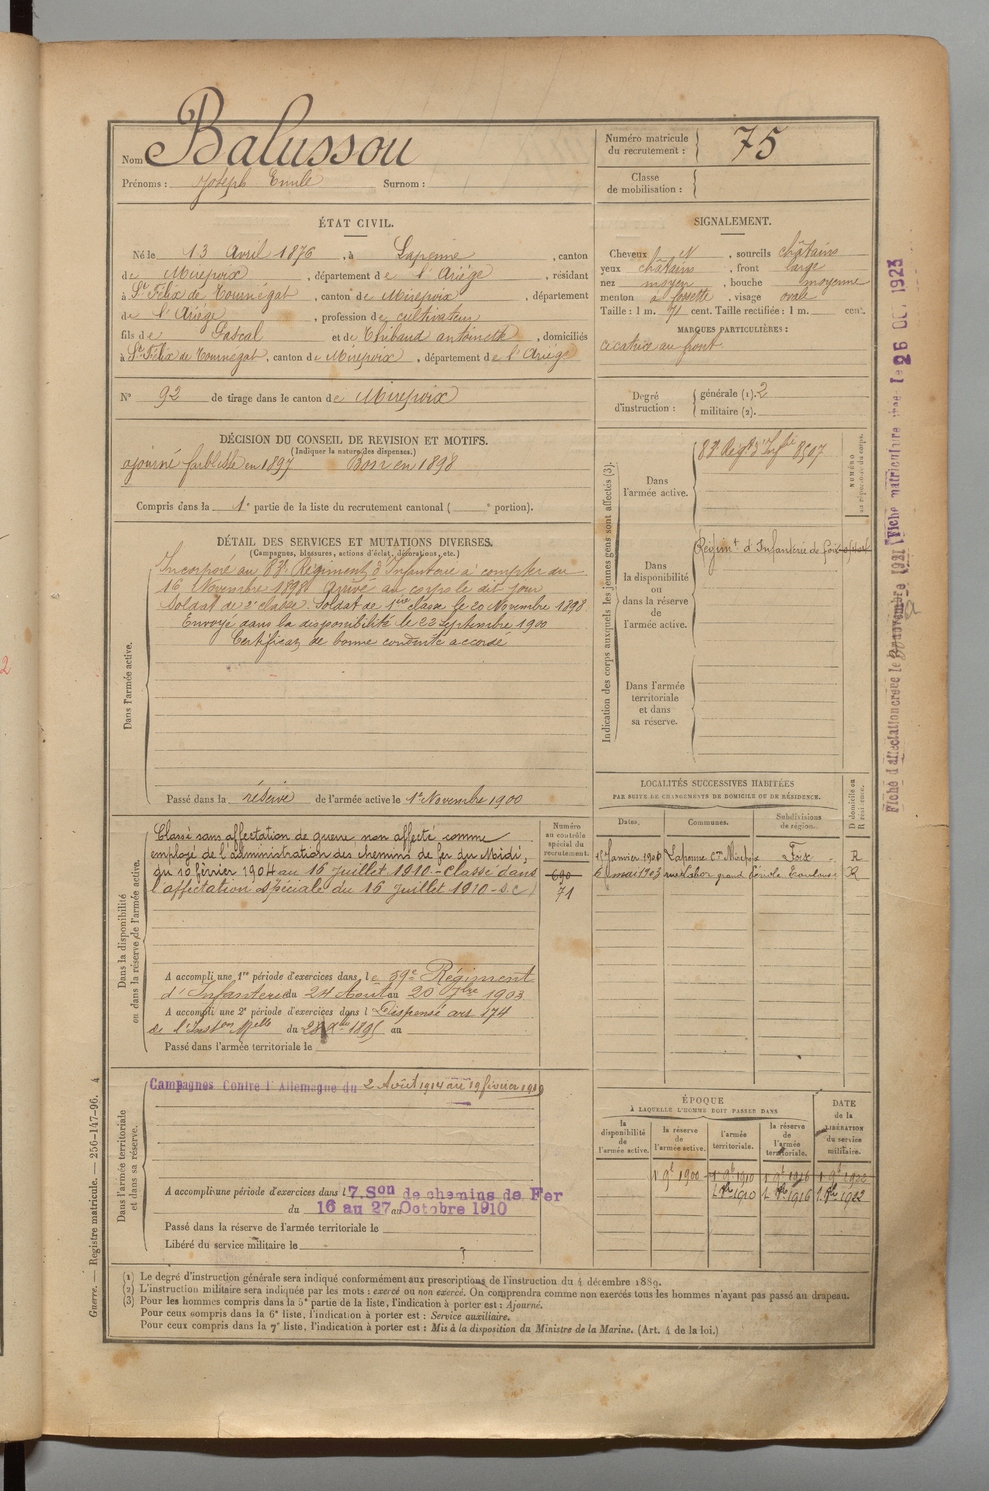 Nom Balussou
Prénoms : Joseph Emile Surnom :
Numéro matricule du recrutement : 75
Classe de mobilisation :
ÉTAT CIVIL.
Né le 13 Avril 1876, à Lapenne, canton
de Mirepoix, département de l'Ariège, résidant
à St Félix de Tournégat, canton de Mirepoix, département
de l'Ariège, profession de cultivateur
fils de Pascal et de Thibaud antoinette, domiciliés
à St Félix de Tournégat, canton de Mirepoix, département de l'Ariège
N° 92 de tirage dans le canton de Mirepoix
SIGNALEMENT.
Cheveux N, sourcils châtains
yeux châtains, front large
nez moyen, bouche moyenne
menton à fossette, visage ovale
Taille : 1 m. 71 cent. Taille rectifiée : 1 m. cent.
MARQUES PARTICULIÈRES :
cicatrice au front
Degré d'instruction : générale (1). 2
militaire (2).
DÉCISION DU CONSEIL DE REVISION ET MOTIFS.
(Indiquer la nature des dispenses.)
ajourné faiblesse en 1897 Bon en 1898
Compris dans la 1e partie de la liste du recrutement cantonal ( e portion).
DÉTAIL DES SERVICES ET MUTATIONS DIVERSES.
(Campagnes, blessures, actions d'éclat, décorations, etc.)
Dans l'armée active.
Incorporé au 83e Régiment d'Infanterie à compter du
16 Novembre 1898 Arrivé au corps le dit jour
Soldat de 2e classe. Soldat de 1ère classe le 20 Novembre 1898
Envoyé dans la disponibilité le 22 Septembre 1900
Certificat de bonne conduite accordé
Passé dans la réserve de l'armée active le 1er Novembre 1900
Indication des corps auxquels les jeunes gens sont affectés (3).
Dans l'armée active.
83e Régt d'Infie 8507
NUMÉRO
Dans la disponibilité ou dans la réserve de l'armée active.
Régimt d'Infanterie de foix
Dans l'armée territoriale et dans sa réserve.
Dans la disponibilité ou dans la réserve de l'armée active.
Classé sans affectation de guerre, non affecté comme
employé de l'administration des chemins de fer du Midi,
du 10 février 1904 au 16 juillet 1910 - Classé dans
l'affectation spéciale du 16 juillet 1910 - S.C.
Numéro au contrôle spécial du recrutement.
690
71
A accompli une 1re période d'exercices dans le 59e Régiment
d'Infanterie du 24 Août au 20 7bre 1903
A accompli une 2e période d'exercices dans l Dispensé art 174
de l'Inston Melle du 28 Xbre 1895 au
Passé dans l'armée territoriale le
LOCALITÉS SUCCESSIVES HABITÉES
PAR SUITE DE CHANGEMENTS DE DOMICILE OU DE RÉSIDENCE.
Dates. Communes. Subdivisions de région. D domicile ou R résidence.
Lapenne Con Mirepoix Foix R
6 mai 1903 Toulouse R
Dans l'armée territoriale et dans sa réserve.
Campagnes Contre l'Allemagne du 2 Août 1914 au 19 février 1919
A accompli une période d'exercices dans l 7.Son de chemins de Fer
du 16 au 27 au Octobre 1910
Passé dans la réserve de l'armée territoriale le
Libéré du service militaire le
ÉPOQUE
À LAQUELLE L'HOMME DOIT PASSER DANS
DATE de la LIBÉRATION du service militaire.
la disponibilité de l'armée active. la réserve de l'armée active. l'armée territoriale. la réserve de l'armée territoriale.
1 9e 1900 1 9e 1910 1 9e 1916 1 9e 1922
1 Xbre 1910 1. Xbre 1916 1. Xbre 1922
(1) Le degré d'instruction générale sera indiqué conformément aux prescriptions de l'instruction du 4 décembre 1889.
(2) L'instruction militaire sera indiquée par les mots : exercé ou non exercé. On comprendra comme non exercés tous les hommes n'ayant pas passé au drapeau.
(3) Pour les hommes compris dans la 5e partie de la liste, l'indication à porter est : Ajourné.
Pour ceux compris dans la 6e liste, l'indication à porter est : Service auxiliaire.
Pour ceux compris dans la 7e liste, l'indication à porter est : Mis à la disposition du Ministre de la Marine. (Art. 4 de la loi.)
Guerre. — Registre matricule. — 256-147-96. 4
Fiche d'affectation créée le novembre 1921 Fiche matriculaire créée le 26 OCT 1923
2